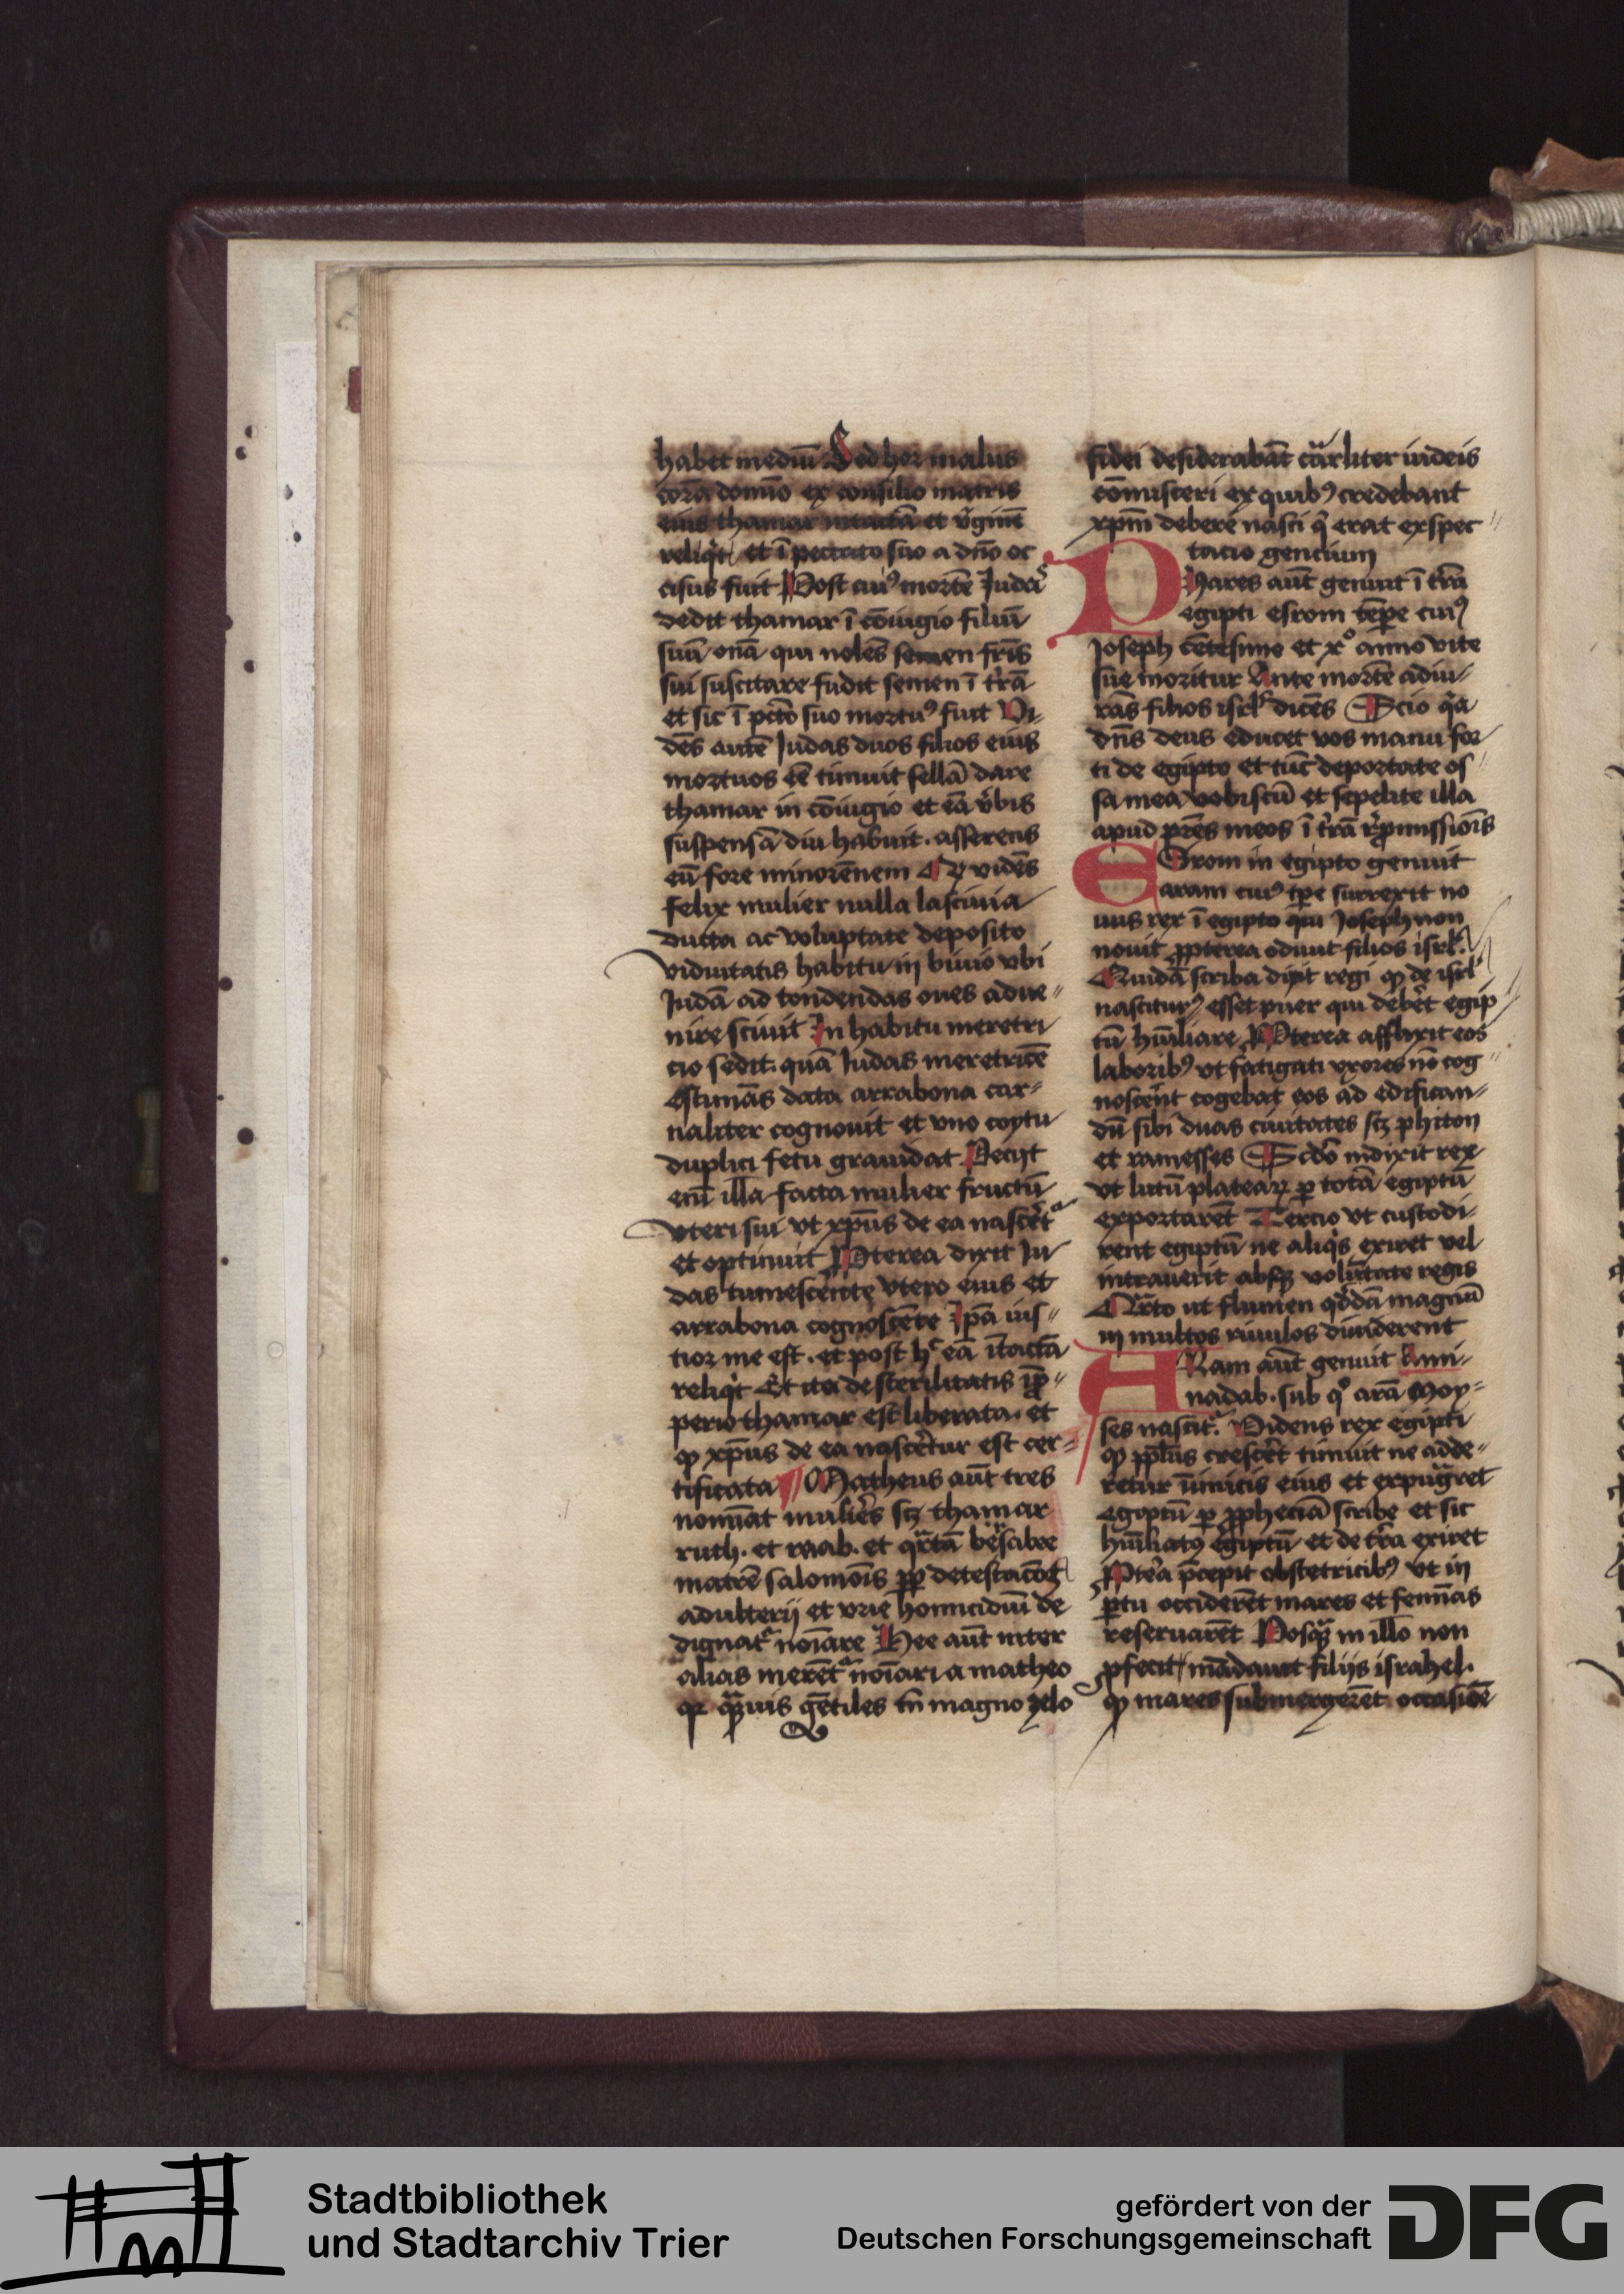 habet mediū Sed her malus
corā domīo ex consilio matris
eius thamar intactā et v̓ginē
reliq̇t et ī peccato suo a dn̄o oc
cisus fuit Post cuiꝰ mortē Judas
dedit thamar ī cōiugio filiū
suū onā qui nolēs semen fr̄is
sui suscitare fudit semen ī t̓rā
et sic ī pctō suo mortuꝰ fuit Vi-
dēs autē Judas duos filios eius
mortuos eē timuit sellā dare
thamar in cōiugio et eā v̓bis
suspensā diu habuit . asserens
eū fore minorēnem Qꝫ vidēs
felix mulier nulla lasciuia
ducta ac voluptate deposito
viduitatis habitu in biuio vbi
Judā ad tondendas oues adue-
nire sciuit In habitu meretri
cio sedit. quā Judas meretricē
estimās data arrabona car-
naliter cognouit et vno coytu
duplici fetu grauidat Pecijt
enī illa facta mulier fructū
vteri sui vt xp̄us de ea nascēt᷑
et optinuit Pterea dixit Ju
das tumescente vtero eius et
arrabona cognoscēte Jpā ius-
tior me est . et post hᶜ eā ītactā
reliq̇t Et ita de sterilitatis īpp-
perio thamar est liberata . et
ꝙ xp̄us de ea nascēretur est cer-
tificata ¶ Matheus aūt tres
nomīat mulieres scꝫ thamar
ruth . et raab . et q̈rtā bersabee
matrē salomōis ꝓp detestacōeȝ
adulterij et vrie homicidiū de
dignat᷑ noīare Hee aūt inter
alias merēt᷑ noīari a matheo
qꝛ quāuis gētiles tn̄ magno zelo
fidei desiderabāt carnliter iudeis
cōmisceri ex quibꝰ credebant
xpm̄ debere nasci q̇ erat exspec-
tacio gencium
Phares aūt genuit ī t̓rā
egipti esrom tēpe cuiꝰ
Joseph cētesimo et xᵒ anno vite
sue moritur Ante mortē adiu-
rās filios isrl̓ dicēs Scio q̇a
dn̄s deus educet vos manu for
ti de egipto et tūc deportate os-
sa mea vobiscū et sepelite illa
apud pr̄es meos ī t̓rā rep̱missiōis
ESrom in egipto genuit
aram cuiꝰ tp̄e surrexit no
uus rex ī egipto qui Joseph non
nouit ꝓpterea odiuit filios isrl̓.
Quidā scriba dixit regi ꝙ de isrl̓
nasciturꝰ esset puer qui debēt egip
tū hūiliare Pterea afflixit eos
laboribꝰ vt fatigati vxores nō cog-
noscent cogebat eos ad edifican-
dū sibi duas ciuitates scꝫ phiton
et ramesses Scdo̓ indixit rex
vt lutū plateaꝝ ꝑ totā egiptū
exportarēt Tercio vt custodi-
rent egiptū ne aliq̇s exiret vel
intrauerit absqꝫ volūtate regis
Q̈rto ut flumen qͦddā magnū
in multos riuulos diuiderent
ARam aūt genuit Ami-
nadab . sub qͦ arā Moy-
ses nascit᷑. Videns rex egipti
ꝙ ppl̄us cresceret timuit ne adde-
retur īimicis eius et expugret
egiptū ꝑ ꝓphetiā scribe et sic
hūiliatꝰ egiptū et de t̓ra exiret
Pte̓a p̄cepit obstetricibꝰ vt in
ꝑtu occiderēt mares et femīas
reseruarēt Posqꝫ in illo non
ꝓfecit mādauit filijs israhel .
ꝙ mares submergerēt occasiōē
Stadtbibliothek
und Stadtarchiv Trier
gefördert von der
Deutschen Forschungsgemeinschaft
DFG